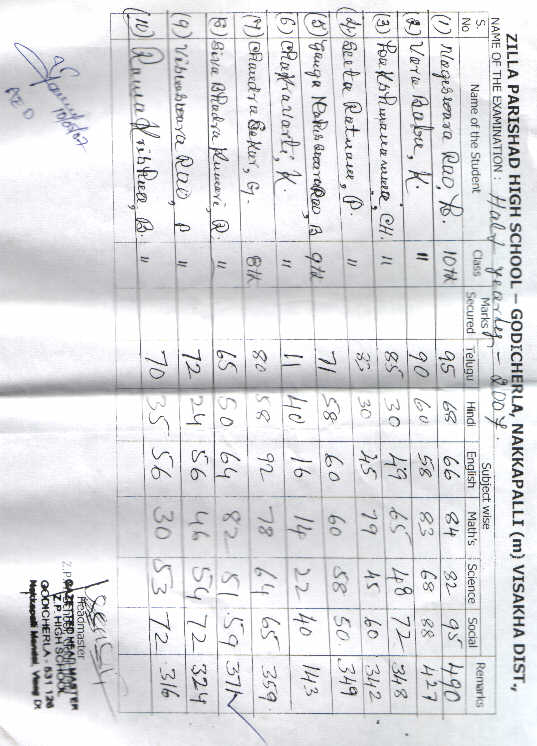 ZILLA PARISHAD HIGH SCHOOL – GODICHERLA, NAKKAPALLI (m) VISAKHA DIST.,
NAME OF THE EXAMINATION : Half yearly - 2007.
S. No Name of the Student Class Marks Secured Subject wise Remarks
Telugu Hindi English Math's Science Social
(1) Nageswara Rao, B. 10th 95 68 66 84 82 95 490
(2) Vara Babu, K. " 90 60 58 83 68 88 427
(3) Lakshmanamma, CH. " 85 30 49 65 48 72 348
(4) Seeta Ratnam, P. " 33 30 45 79 45 60 312
(5) Ganga Maheswara Rao, B 9th 71 58 60 60 58 50 349
(6) Chakravarti, K. " 11 40 16 14 22 40 143
(7) Chandra Sekar, G. 8th 80 58 92 78 64 65 359
(8) Siva Bhadra Kumari, R. " 65 50 64 82 51 59 371
(9) Visweswara Rao, P " 72 24 56 46 54 72 324
(10) Rama Krishna, B. " 70 35 56 30 53 72 316
Headmaster
GAZETTED HEAD MASTER
Z.P HIGH SCHOOL
GODICHERLA - 531 126
Nakkapalli Mandal, Visag Dt